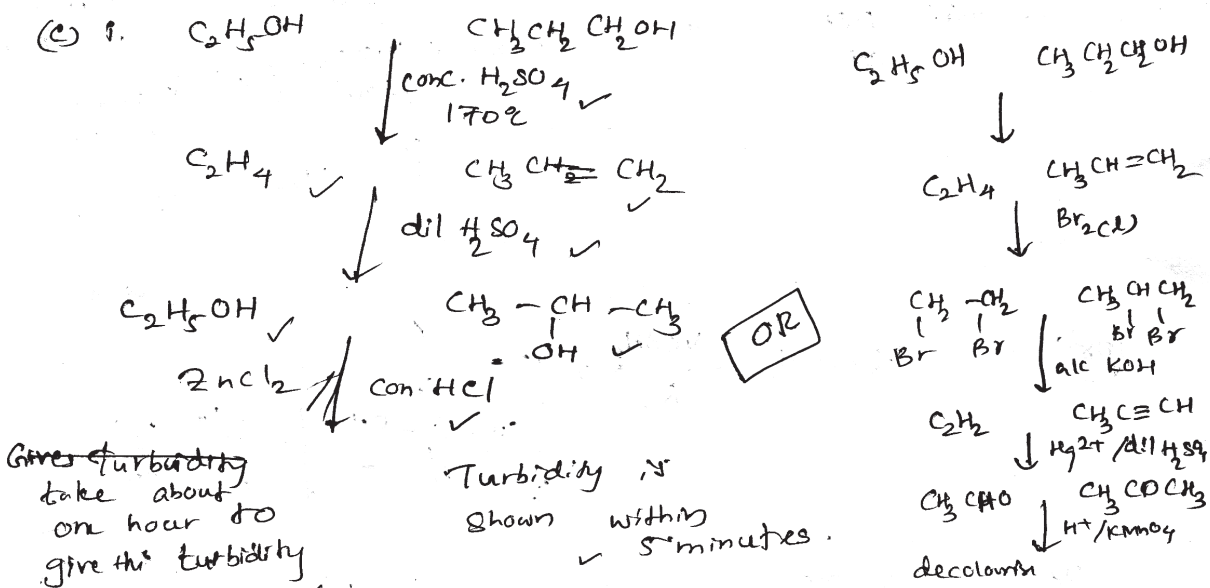 (c) 1. C₂H₅OH CH₃CH₂CH₂OH
conc. H₂SO₄ ✓
170
C₂H₄ ✓ CH₃ CH= CH₂ ✓
dil H₂SO₄ ✓
C₂H₅OH ✓ CH₃ – CH – CH₃
OH ✓
ZnCl₂ Con. HCl ✓
Gives turbidity
take about
one hour to
give this turbidity
Turbidity is
shown within
✓ 5 minutes.
OR
C₂H₅OH CH₃CH₂CH₂OH
C₂H₄ CH₃CH=CH₂
Br₂(l)
CH₂–CH₂ CH₃CHCH₂
Br Br Br Br
alc KOH
C₂H₂ CH₃C≡CH
Hg²⁺/dil H₂SO₄
CH₃CHO CH₃COCH₃
H⁺/KMnO₄
decolourise